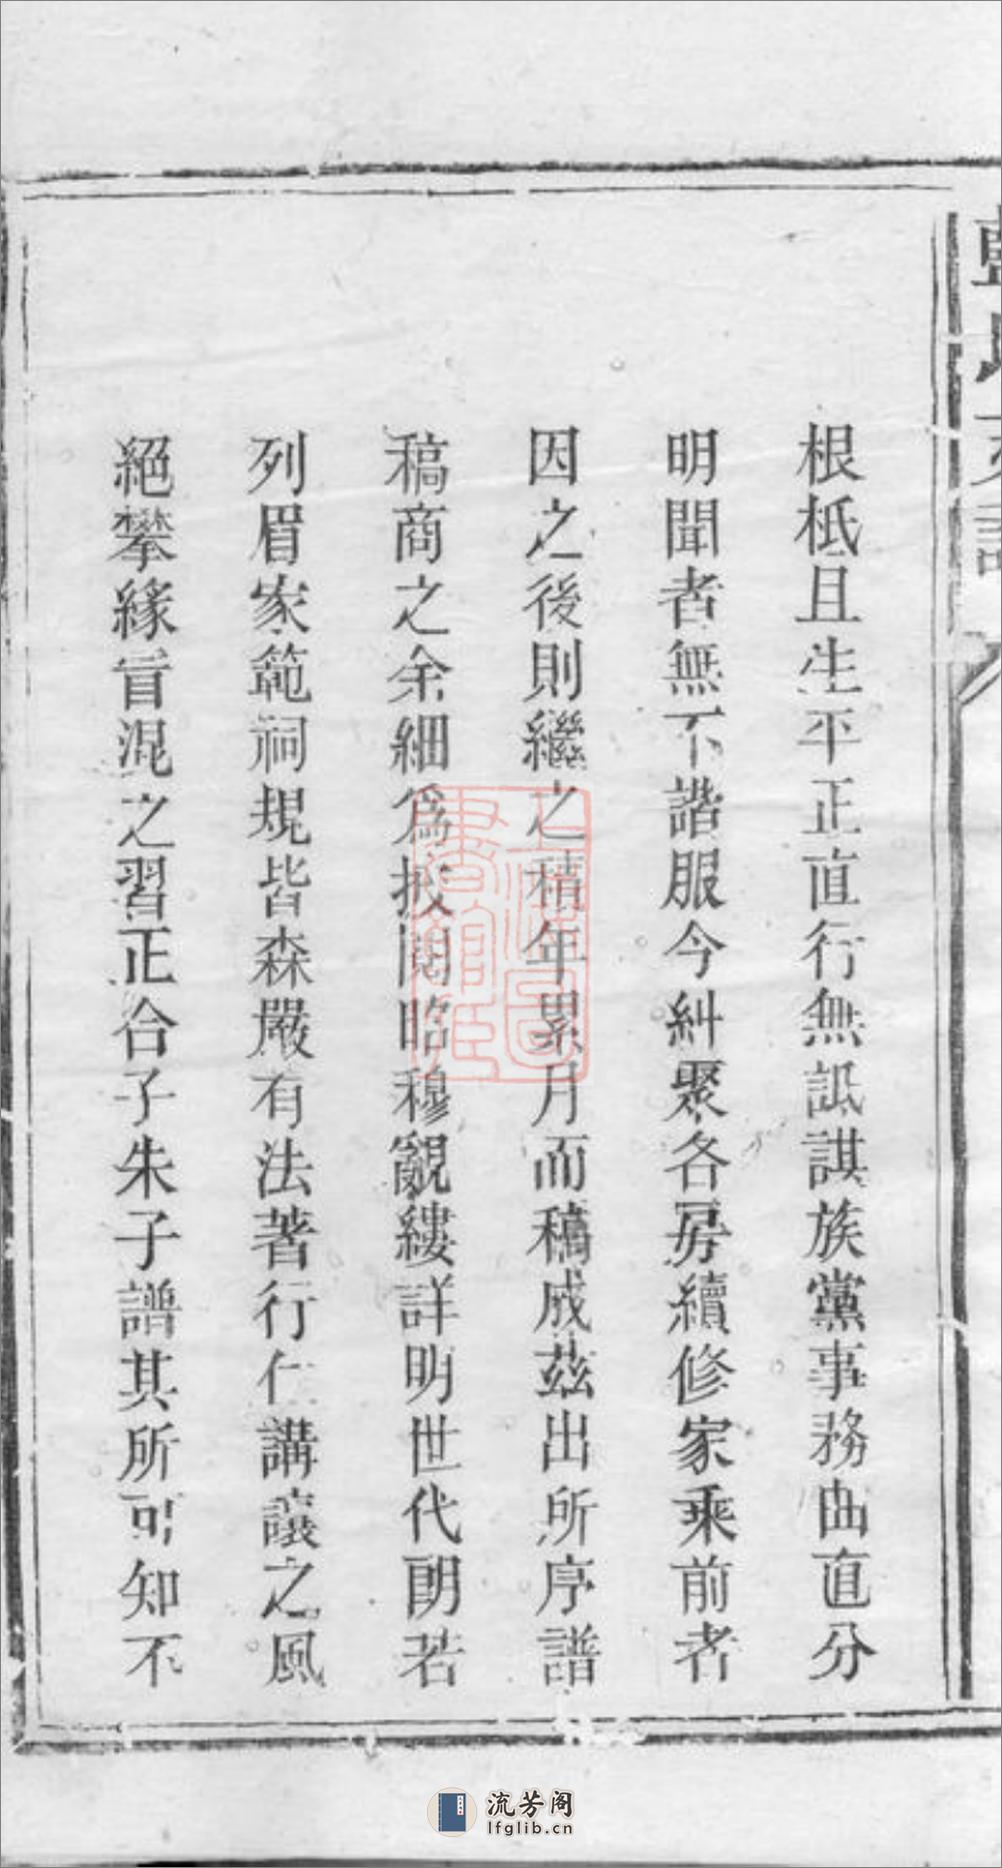 根柢且生平正直行無詖諆族黨事務曲直分
明聞者無不諧服今糾聚各房續修家乘前者
因之後則繼之積年累月而稿成茲出所序譜
稿商之余細為披閱昭穆覼縷詳明世代朗若
列眉家範祠規皆森嚴有法著行仁講讓之風
絕攀緣冒混之習正合子朱子譜其所可知不
流芳阁
lfglib.cn